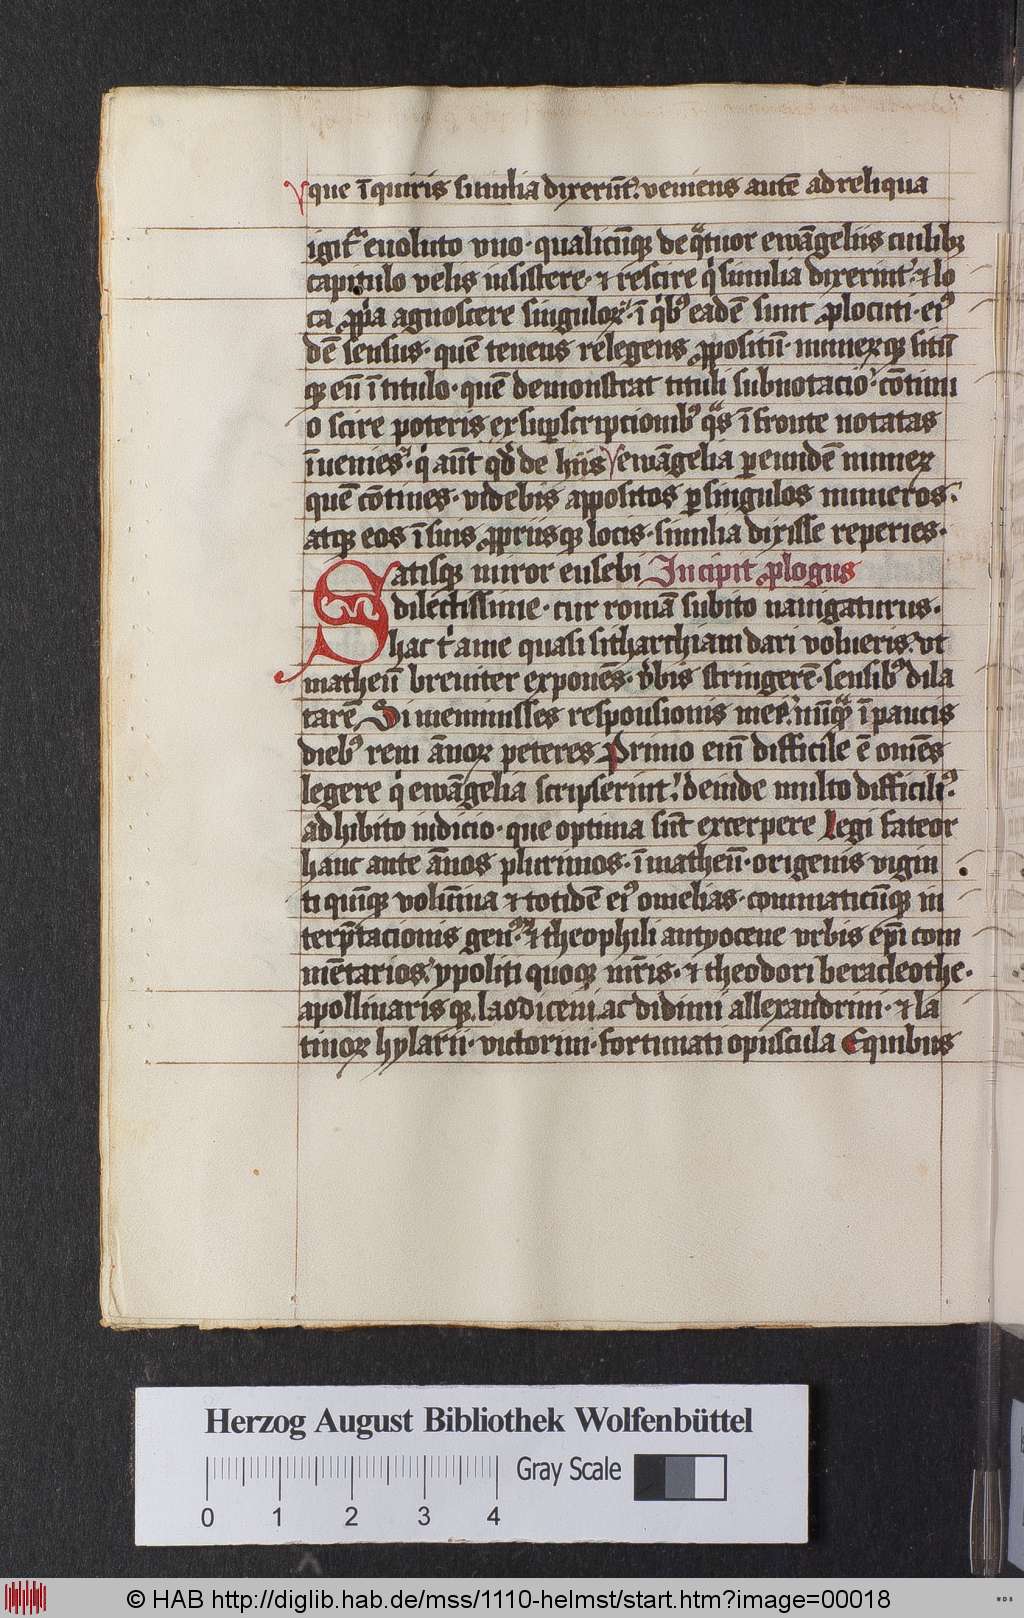 que ī quiris similia dixerūt. veniens autē ad reliqua
igit᷑ euoluto vno · qualicūqꝫ de qͣtuor ewāgeliis cuilibꝫ
capitulo velis insistere · ⁊ rescire q̇ similia dixerint · ⁊ lo
ca ꝓpͥa agnoscere singuloꝝ · ī qͥbꝰ eadē sunt ꝓlocuti · eiꝰ
dē sensus · quē tenens relegens ꝓpositū · numerꝫqꝫ sitū
qꝫ eū ī titulo · quē demonstrat tituli subnotacio · cōtinu
o scire poteris ex suꝑscripcionibꝰ qͣs ī fronte notatas
īuenies · q̇ aūt qd̓ de hiis ewāgelia ꝑ eundē numerꝫ
quē cōtines · videbis appositos ꝑ singulos numeros ·
atqꝫ eos ī suis ꝓpriisqꝫ locis · similia dixisse reperies ·
Satisqꝫ miror eusebi Incipit ꝓlogus
dilectissime · cur romā subito nauigaturus ·
hac t̓ a me quasi sitharchiam dari volueris · vt
matheū breuiter exponēs · v̓bis stringerē · sensibꝰ dila
tarē Si meminisses responsionis mee · nūqͣꝫ ī paucis
diebꝰ rem ānoꝝ peteres Primo eni᷑ difficile ē omēs
legere q̇ ewāgelia scripserint · deinde multo difficiliꝰ ·
adhibito iudicio · que optima sūt excerpere Legi fateor
hanc ante ānos plurimos · ī matheū · origenis vigin
ti quīqꝫ volūina ⁊ totidē eiꝰ omelias · commaticūqꝫ in
terp̄tacionis genꝰ · ⁊ theophili antyocene vrbis ep̄i com
mētarios · ypoliti quoqꝫ mr̄is · ⁊ theodori heracleothe ·
apollinarisqꝫ laodiceni ac didimi allexandrini · ⁊ la
tinoꝝ hylarii · victorini · fortunati opuscula E quibus
Herzog August Bibliothek Wolfenbüttel
Gray Scale
0 1 2 3 4
© HAB http://diglib.hab.de/mss/1110-helmst/start.htm?image=00018